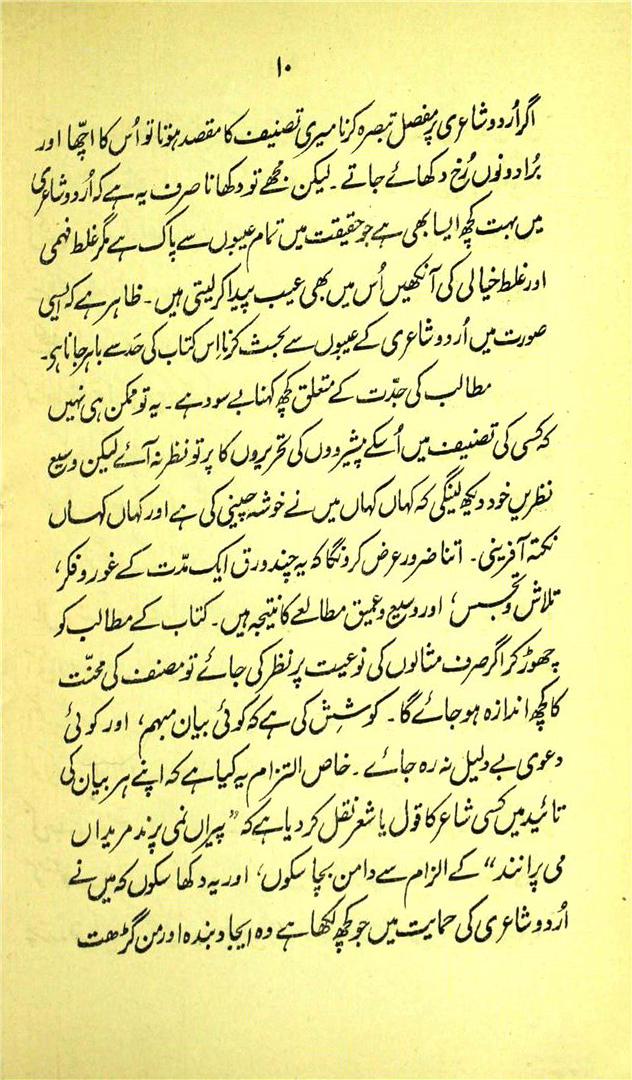 ۱۰
اگر اُردو شاعری پر مفصل تبصرہ کرنا میری تصنیف کا مقصد ہوتا تو اُس کا اچھا اور
بُرا دونوں رُخ دکھائے جاتے۔ لیکن مجھے تو دکھانا صرف یہ ہے کہ اُردو شاعری
میں بہت کچھ ایسا بھی ہے جو حقیقت میں تمام عیبوں سے پاک ہے مگر غلط فہمی
اور غلط خیالی کی آنکھیں اُس میں بھی عیب پیدا کر لیتی ہیں۔ ظاہر ہے کہ ایسی
صورت میں اُردو شاعری کے عیبوں سے بحث کرنا اِس کتاب کی حد سے باہر جانا ہو۔
مطالب کی جدّت کے متعلق کچھ کہنا بے سود ہے۔ یہ تو ممکن ہی نہیں
کہ کسی کی تصنیف میں اُسکے پیشرووں کی تحریروں کا پرتو نظر نہ آئے لیکن وسیع
نظریں خود دیکھ لینگی کہ کہاں کہاں میں نے خوشہ چینی کی ہے اور کہاں کہاں
نکتہ آفرینی۔ اتنا ضرور عرض کرونگا کہ یہ چند ورق ایک مدّت کے غور و فکر،
تلاش و تجسس، اور وسیع و عمیق مطالعے کا نتیجہ ہیں۔ کتاب کے مطالب کو
چھوڑ کر اگر صرف مثالوں کی نوعیت پر نظر کی جائے تو مصنف کی محنت
کا کچھ اندازہ ہو جائے گا۔ کوشش کی ہے کہ کوئی بیان مبہم، اور کوئی
دعویٰ بے دلیل نہ رہ جائے۔ خاص التزام یہ کیا ہے کہ اپنے ہر بیان کی
تائید میں کسی شاعر کا قول یا شعر نقل کر دیا ہے کہ ”پیراں نمی پرند مریداں
می پرانند“ کے الزام سے دامن بچا سکوں، اور یہ دکھا سکوں کہ میں نے
اُردو شاعری کی حمایت میں جو کچھ لکھا ہے وہ ایجاد بندہ اور من گڑھت